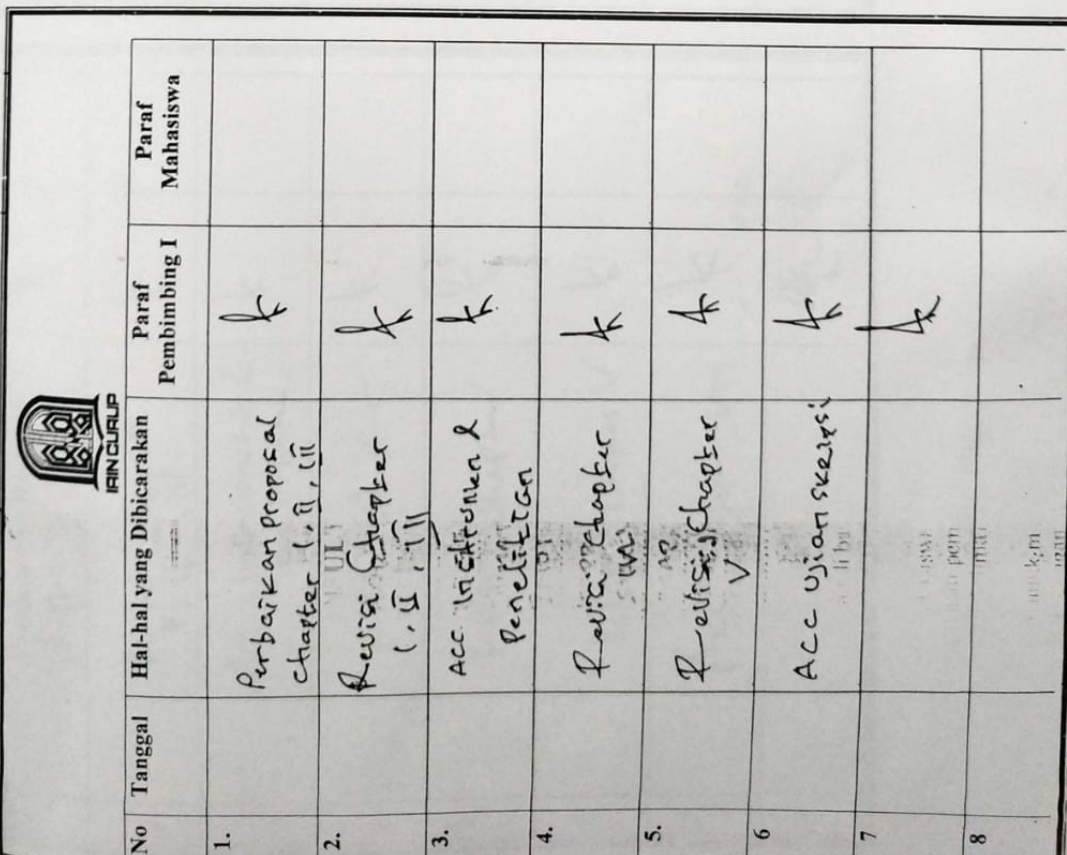 IAIN CURUP
No Tanggal Hal-hal yang Dibicarakan Paraf Pembimbing I Paraf Mahasiswa
1. Perbaikan proposal
chapter I, II, III
2. Revisi Chapter
I, II, III
3. ACC Instrumen &
Penelitian
4. Revisi chapter
5. Revisi Chapter
V
6 ACC Ujian skripsi
7
8